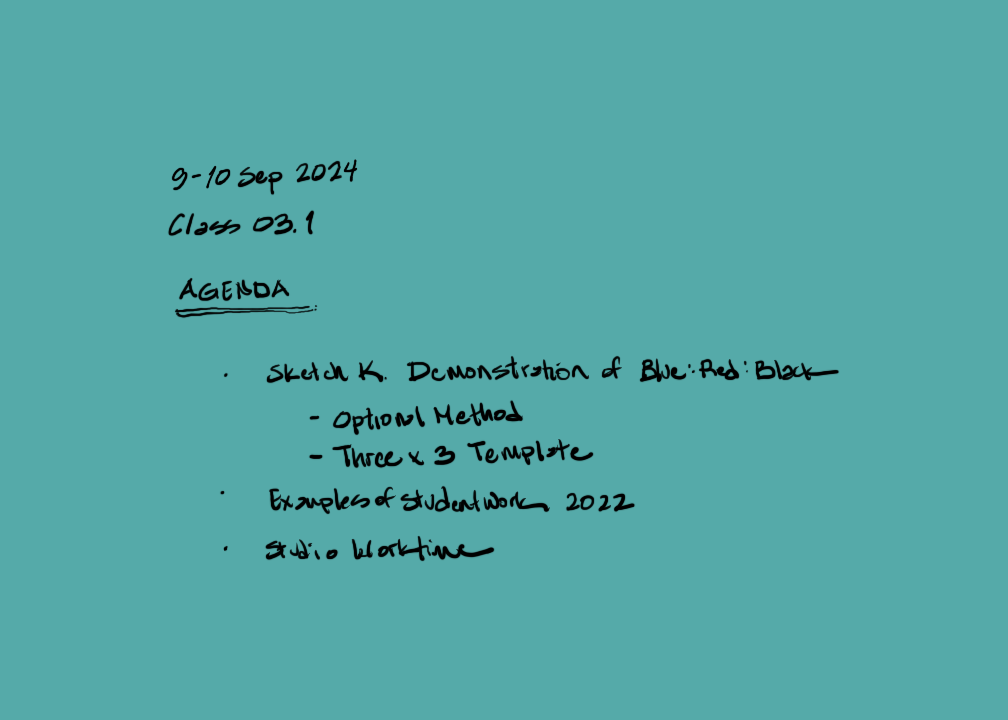 9-10 Sep 2024
Class 03.1
AGENDA
· Sketch K. Demonstration of Blue:Red:Black
- Optional Method
- Three x 3 Template
· Examples of Student Work 2022
· Studio Worktime